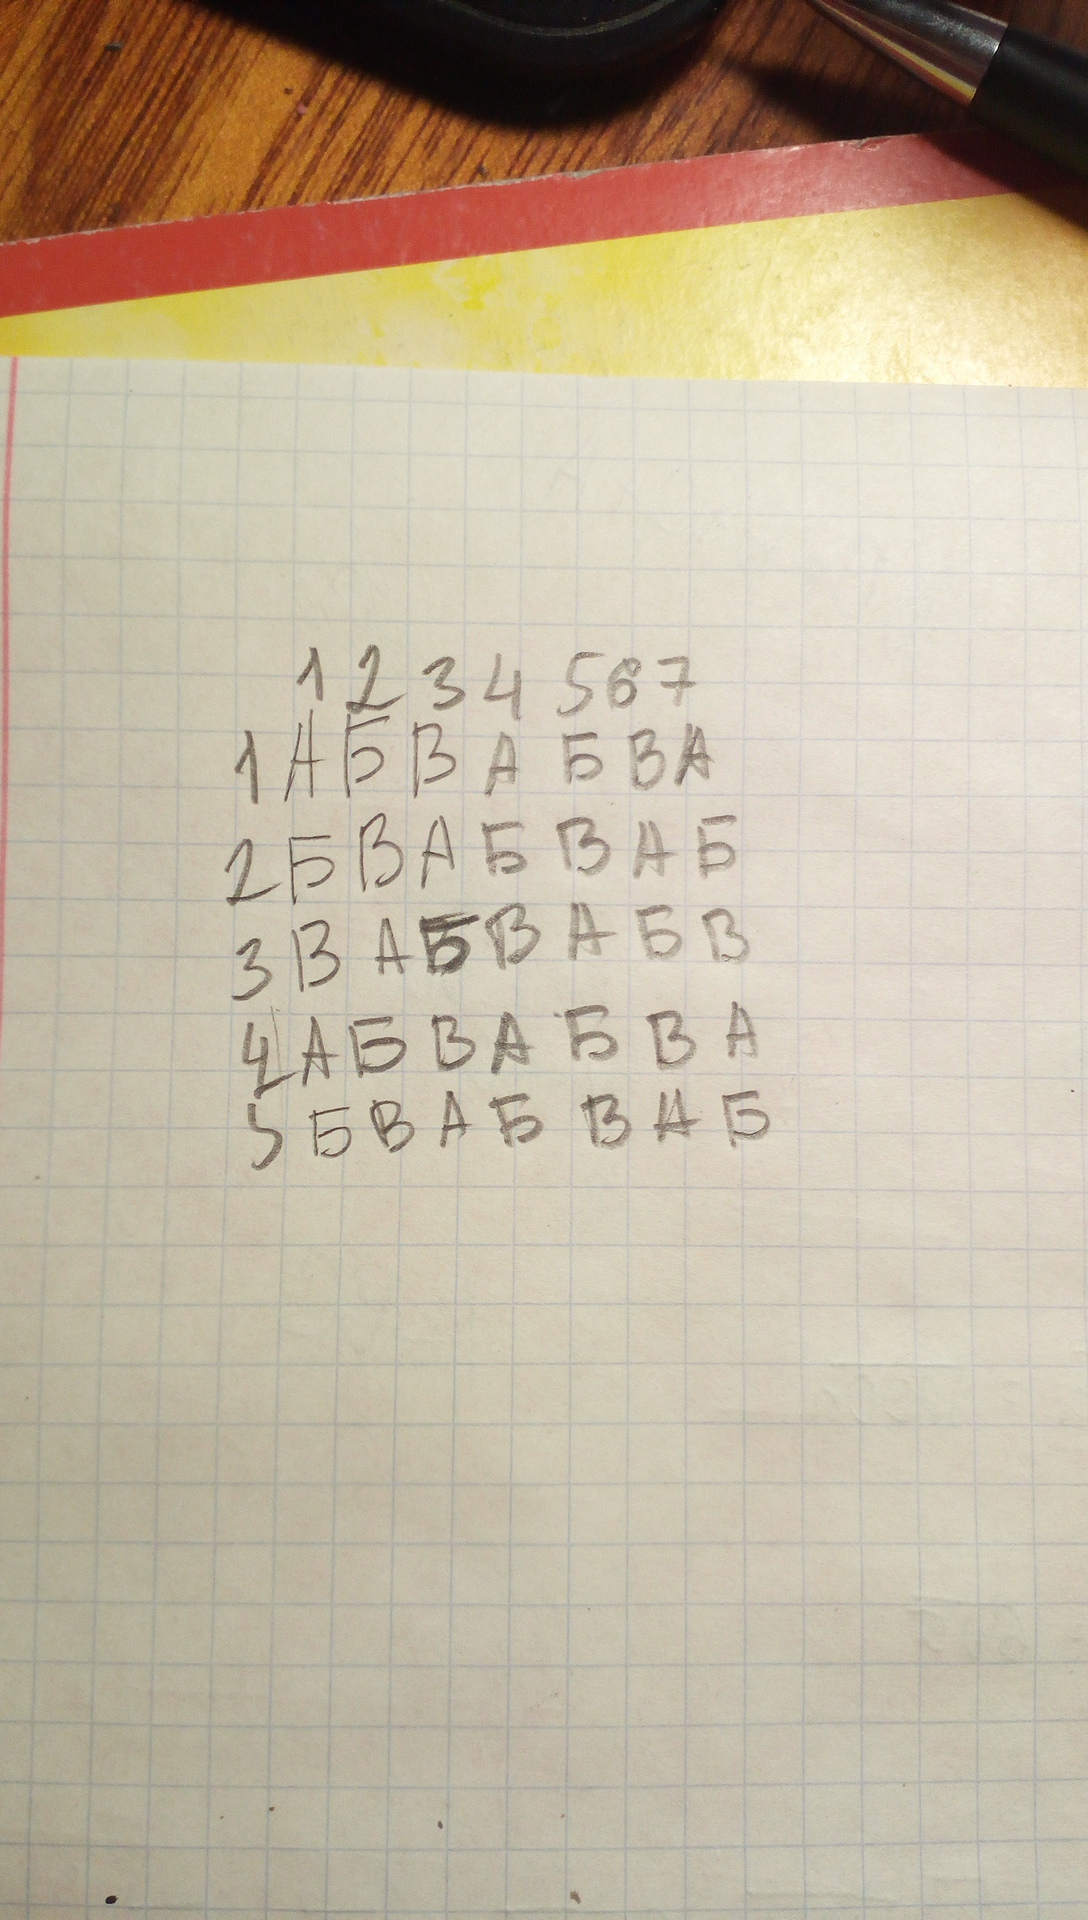 1 2 3 4 5 6 7
1 А Б В А Б В А
2 Б В А Б В А Б
3 В А Б В А Б В
4 А Б В А Б В А
5 Б В А Б В А Б